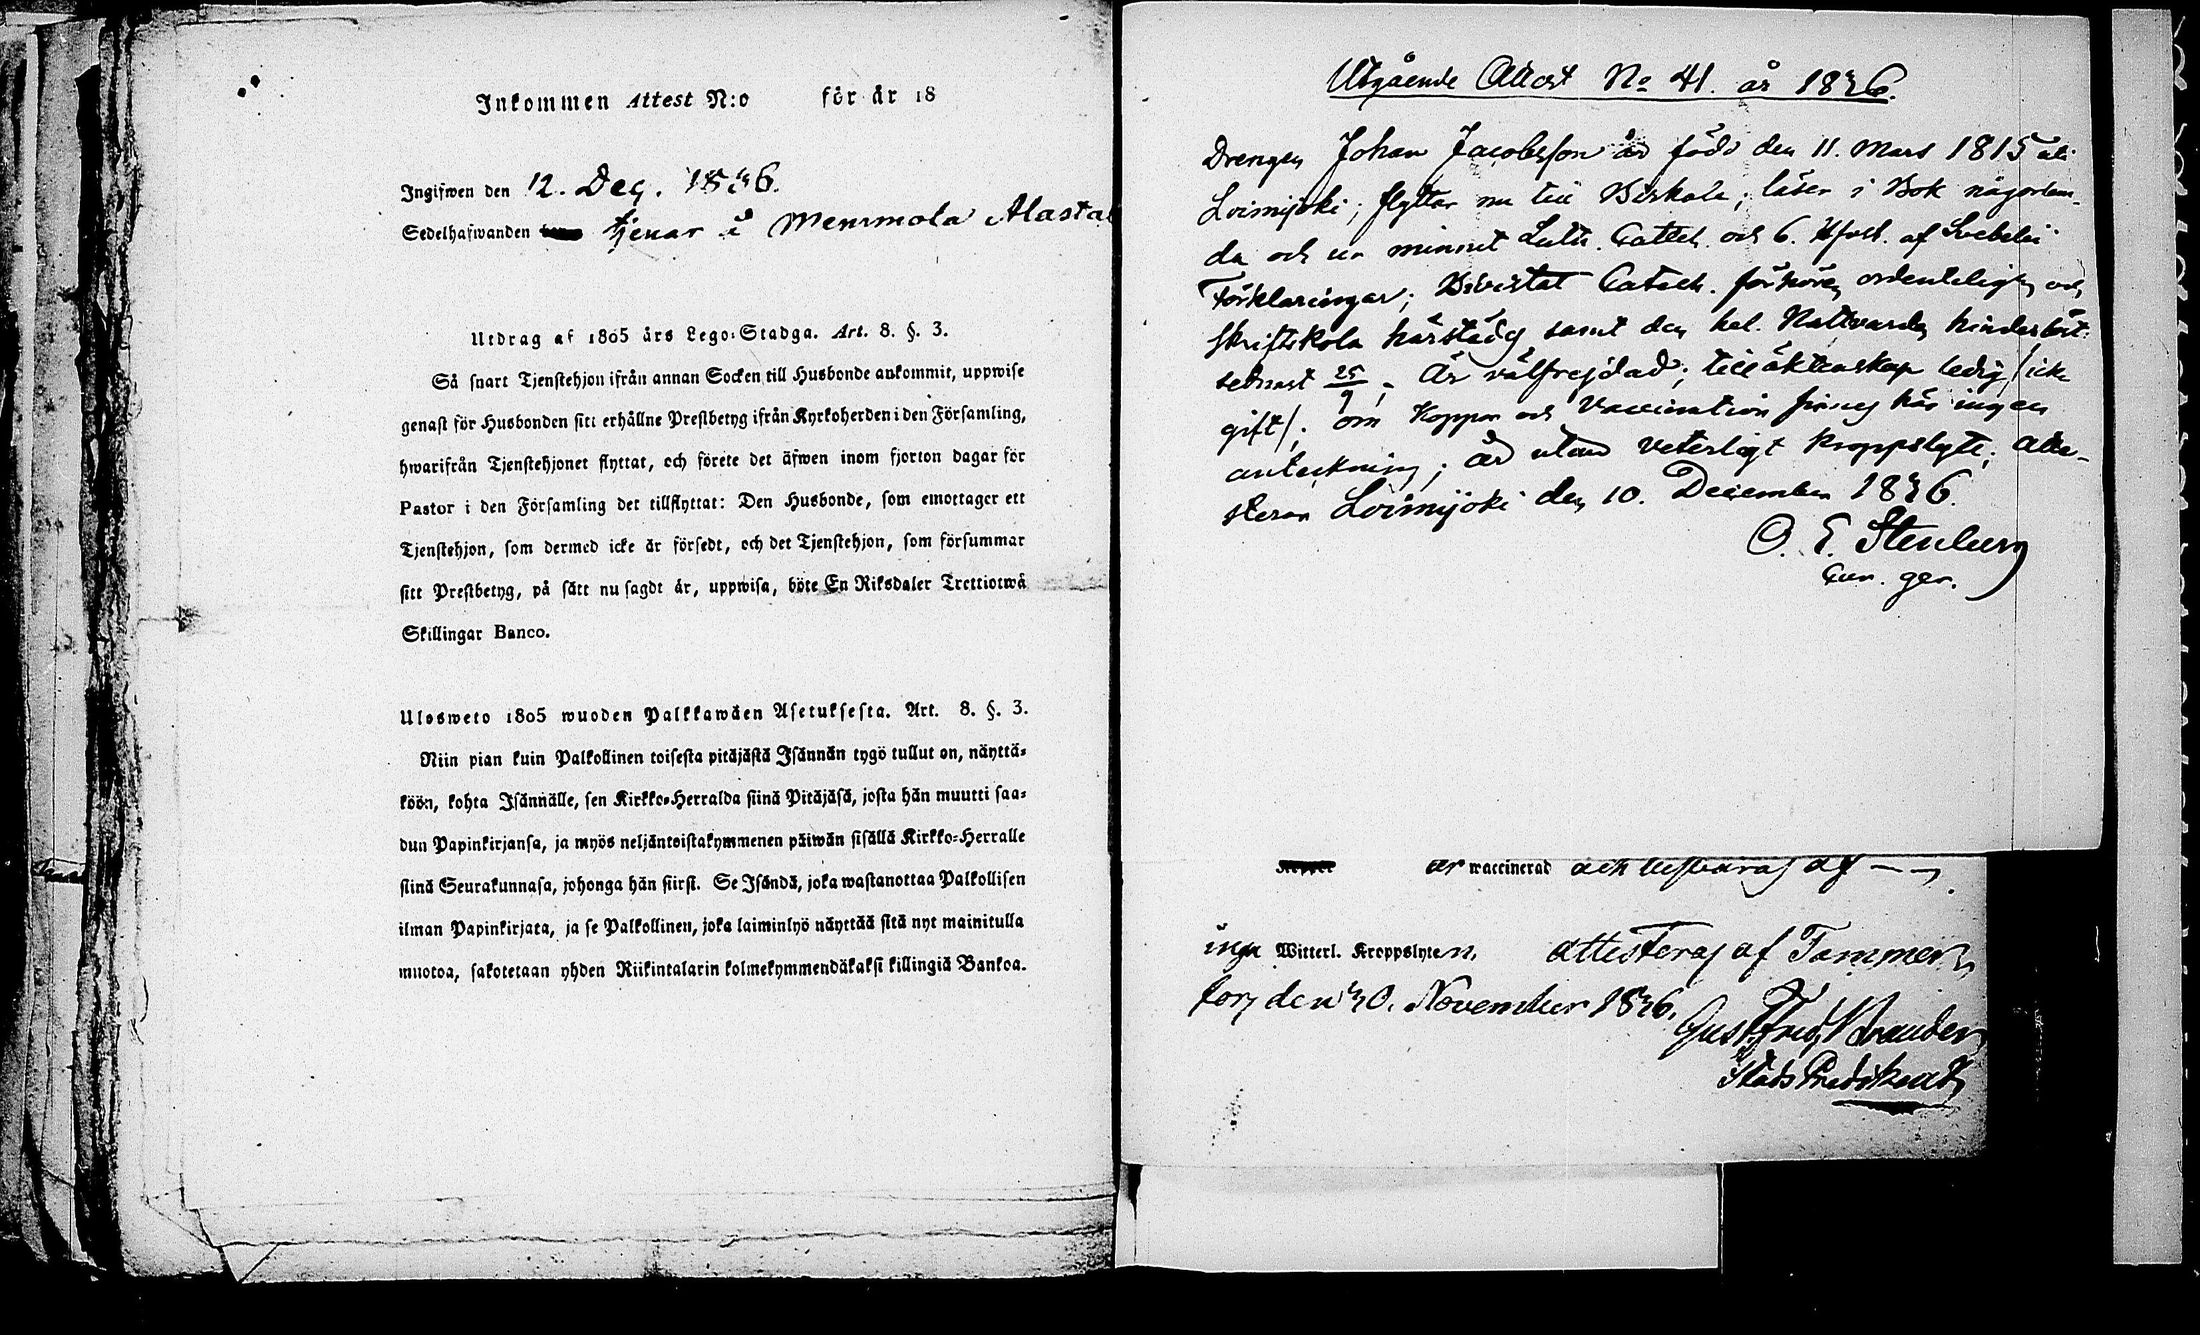 Inkommen Attest N:o för år 18
Ingifwen den 12. Dec. 1836.
Sedelhafwanden tjenar i Memmola Alasta
Utdrag af 1805 års Lego-Stadga. Art. 8. §. 3.
Så snart Tjenstehjon ifrån annan Socken till Husbonde ankommit, uppwise
genast för Husbonden sitt erhållne Prestbetyg ifrån Kyrkoherden i den Församling,
hwarifrån Tjenstehjonet flyttat, och förete det äfwen inom fjorton dagar för
Pastor i den Församling det tillflyttat: Den Husbonde, som emottager ett
Tjenstehjon, som dermed icke är försedt, och det Tjenstehjon, som försummar
sitt Prestbetyg, på sätt nu sagdt är, uppwisa, böte En Riksdaler Trettiotwå
Skillingar Banco.
Ulosweto 1805 wuoden Palkkawäen Asetuksesta. Art. 8. §. 3.
Niin pian kuin Palkollinen toisesta pitäjästä Isännän tygö tullut on, näyttä-
köön, kohta Isännälle, sen Kirkko-Herralda siinä Pitäjäsä, josta hän muutti saa-
dun Papinkirjansa, ja myös neljäntoistakymmenen päiwän sisällä Kirkko-Herralle
siinä Seurakunnasa, johonga hän siirsi. Se Isändä, joka wastanottaa Palkollisen
ilman Papinkirjata, ja se Palkollinen, joka laiminlyö näyttää sitä nyt mainitulla
muotoa, sakotetaan yhden Riikintalarin kolmekymmendäkaksi killingiä Bankoa.
Utgående Attest No 41. år 1836.
Drengen Johan Jacobsson är född den 11. Mars 1815 uti
Loimijoki; flyttar nu till Birkala; läser i Bok någorlun-
da och ur minnet Luth. Catech. och 6. Hfvst. af Svebelii
Förklaringar; Bivistat Catech. förhören ordenteligen och
skriftskola härstädes, samt den hel. Nattvarden hinderlöst
sednast 25/9. Är välfrejdad; till äktenskap ledig /icke
gift/; om Koppor och Vaccination finnes här ingen
anteckning; är utan veterligt kroppslyte; atte-
steras Loimijoki den 10. December 1836.
O. E. Stenberg
Cur. ger.
är waccinerad och af
inga Witterl. Kroppslyten. attesteras af Tammer-
fors den 30. November 1836.
Gust. Fredr.
Stads Predikant